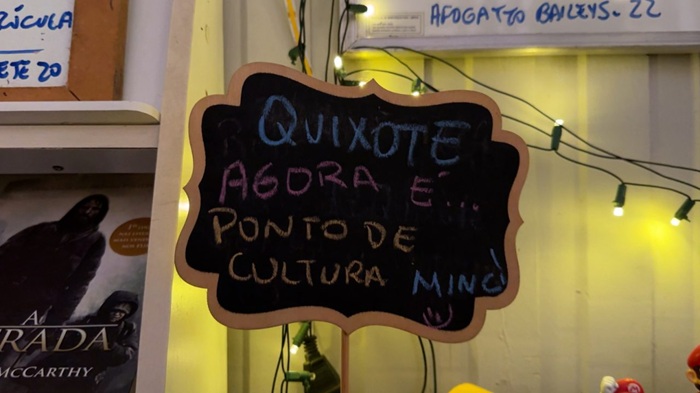 RÚCULA
ETE 20
AFOGATTO BAILEYS. 22
QUIXOTE
AGORA É...
PONTO DE
CULTURA MINC!
A
RADA
MCCARTHY